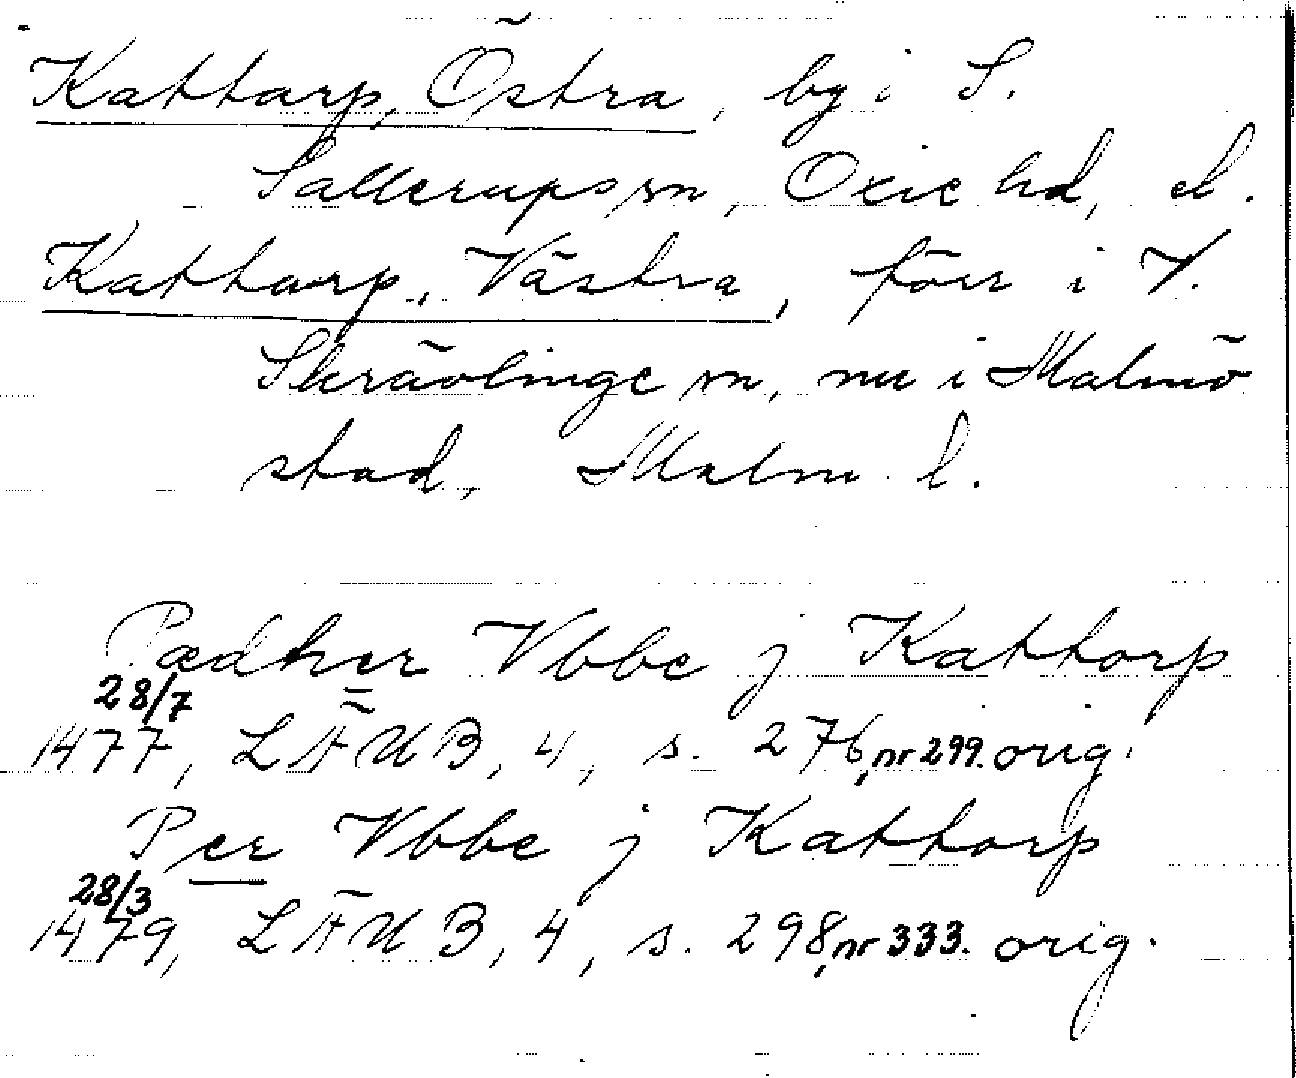 Kattarp, Östra, by i S.
Sallerups sn, Oxie hd, el.
Kattarp, Västra, förr i V.
Skrävlinge sn, nu i Malmö
stad, Malm. l.
Pædher Vbbe j Kattorp
28/7
1477, LÄUB, 4, s. 276, nr 299. orig.
Per Vbbe j Kattorp
28/3
1479, LÄUB, 4, s. 298, nr 333. orig.